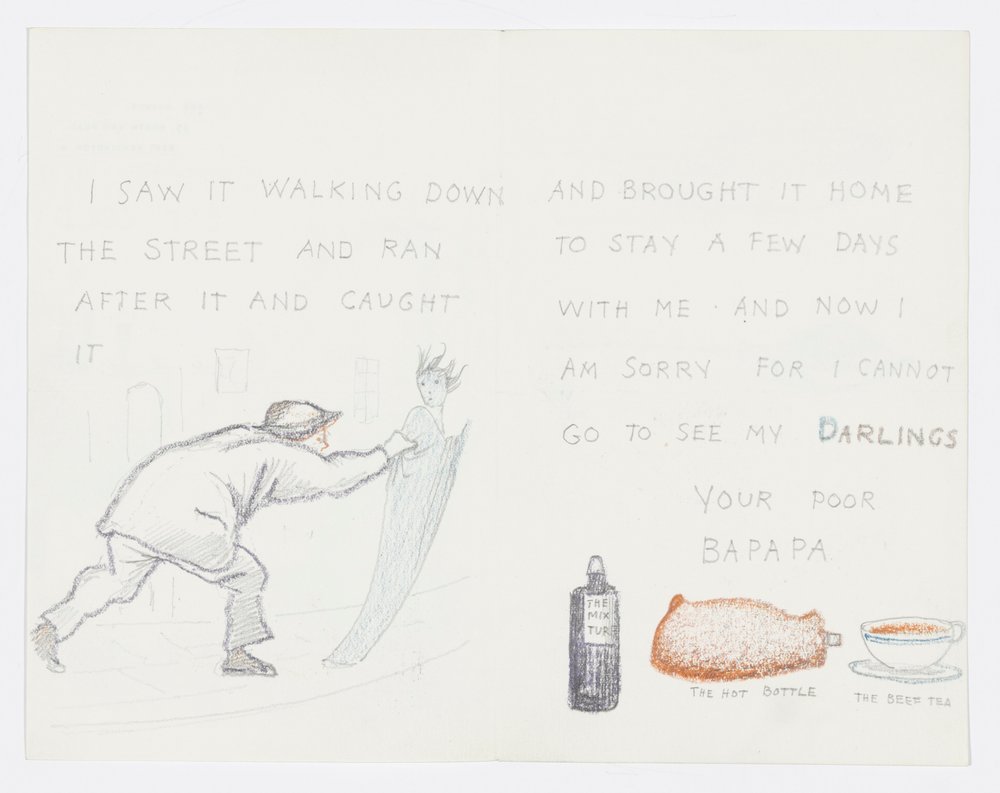 I SAW IT WALKING DOWN
THE STREET AND RAN
AFTER IT AND CAUGHT
IT
AND BROUGHT IT HOME
TO STAY A FEW DAYS
WITH ME · AND NOW I
AM SORRY FOR I CANNOT
GO TO SEE MY DARLINGS
YOUR POOR
BAPAPA
THE
MIX
TUR
THE HOT BOTTLE
THE BEEF TEA